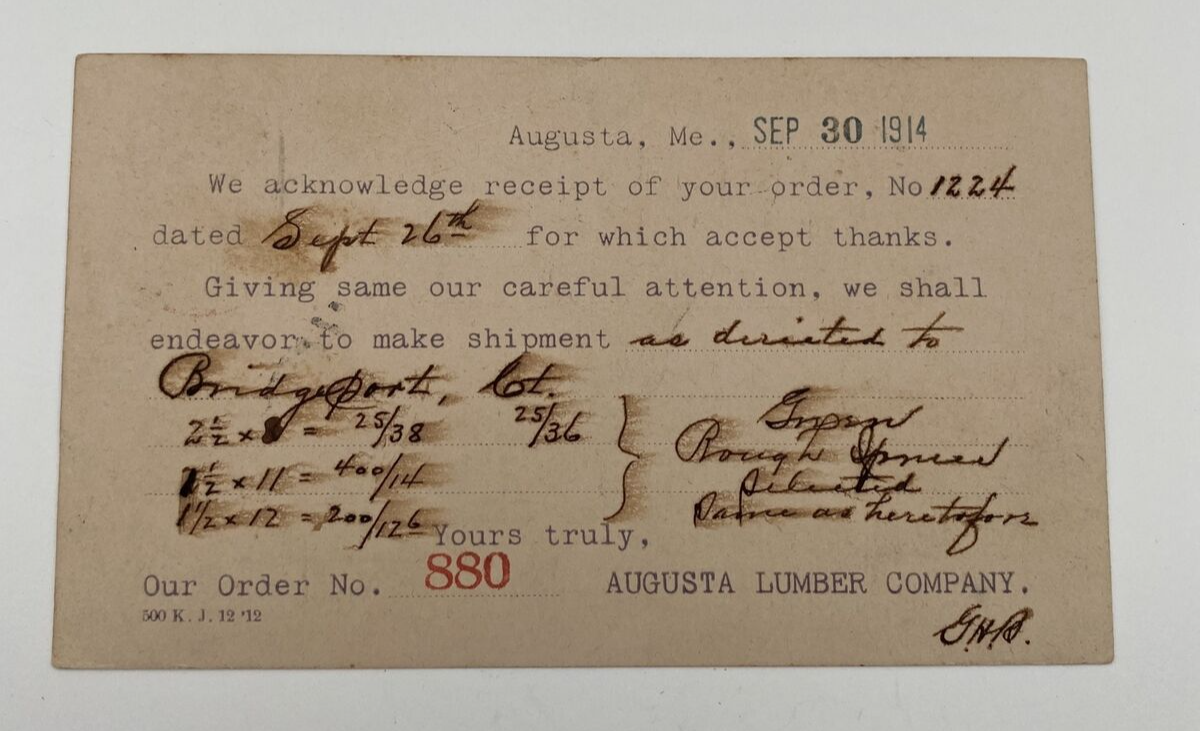 Augusta, Me., SEP 30 1914
We acknowledge receipt of your order, No 1224
dated Sept 26th for which accept thanks.
Giving same our careful attention, we shall
endeavor to make shipment as dericted to
Bridgeport, Ct.
2 1/2 x 8 = 25/38 25/36 Green
Rough Spruce
1 1/2 x 11 = 400/14 Selected
1 1/2 x 12 = 200/126 Same as heretofore
Yours truly,
Our Order No. 880 AUGUSTA LUMBER COMPANY.
500 K. J. 12 '12
G.H.B.